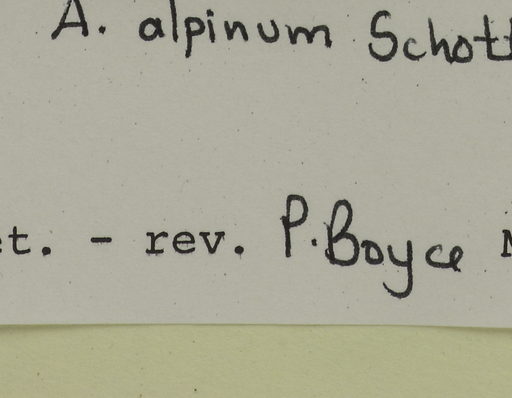 A. alpinum Schott
et. - rev. P. Boyce